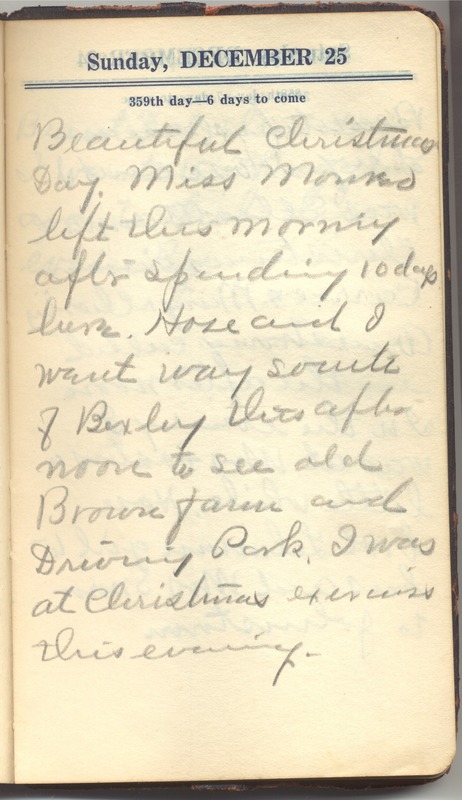 Sunday, DECEMBER 25
359th day—6 days to come
Beautiful Christmas
Day. Miss
left this morning
after spending 10 days
here. Rose and I
went way south
of Bexley this after
noon to see old
Brown farm and
Driving Park. I was
at Christmas exercises
this evening.